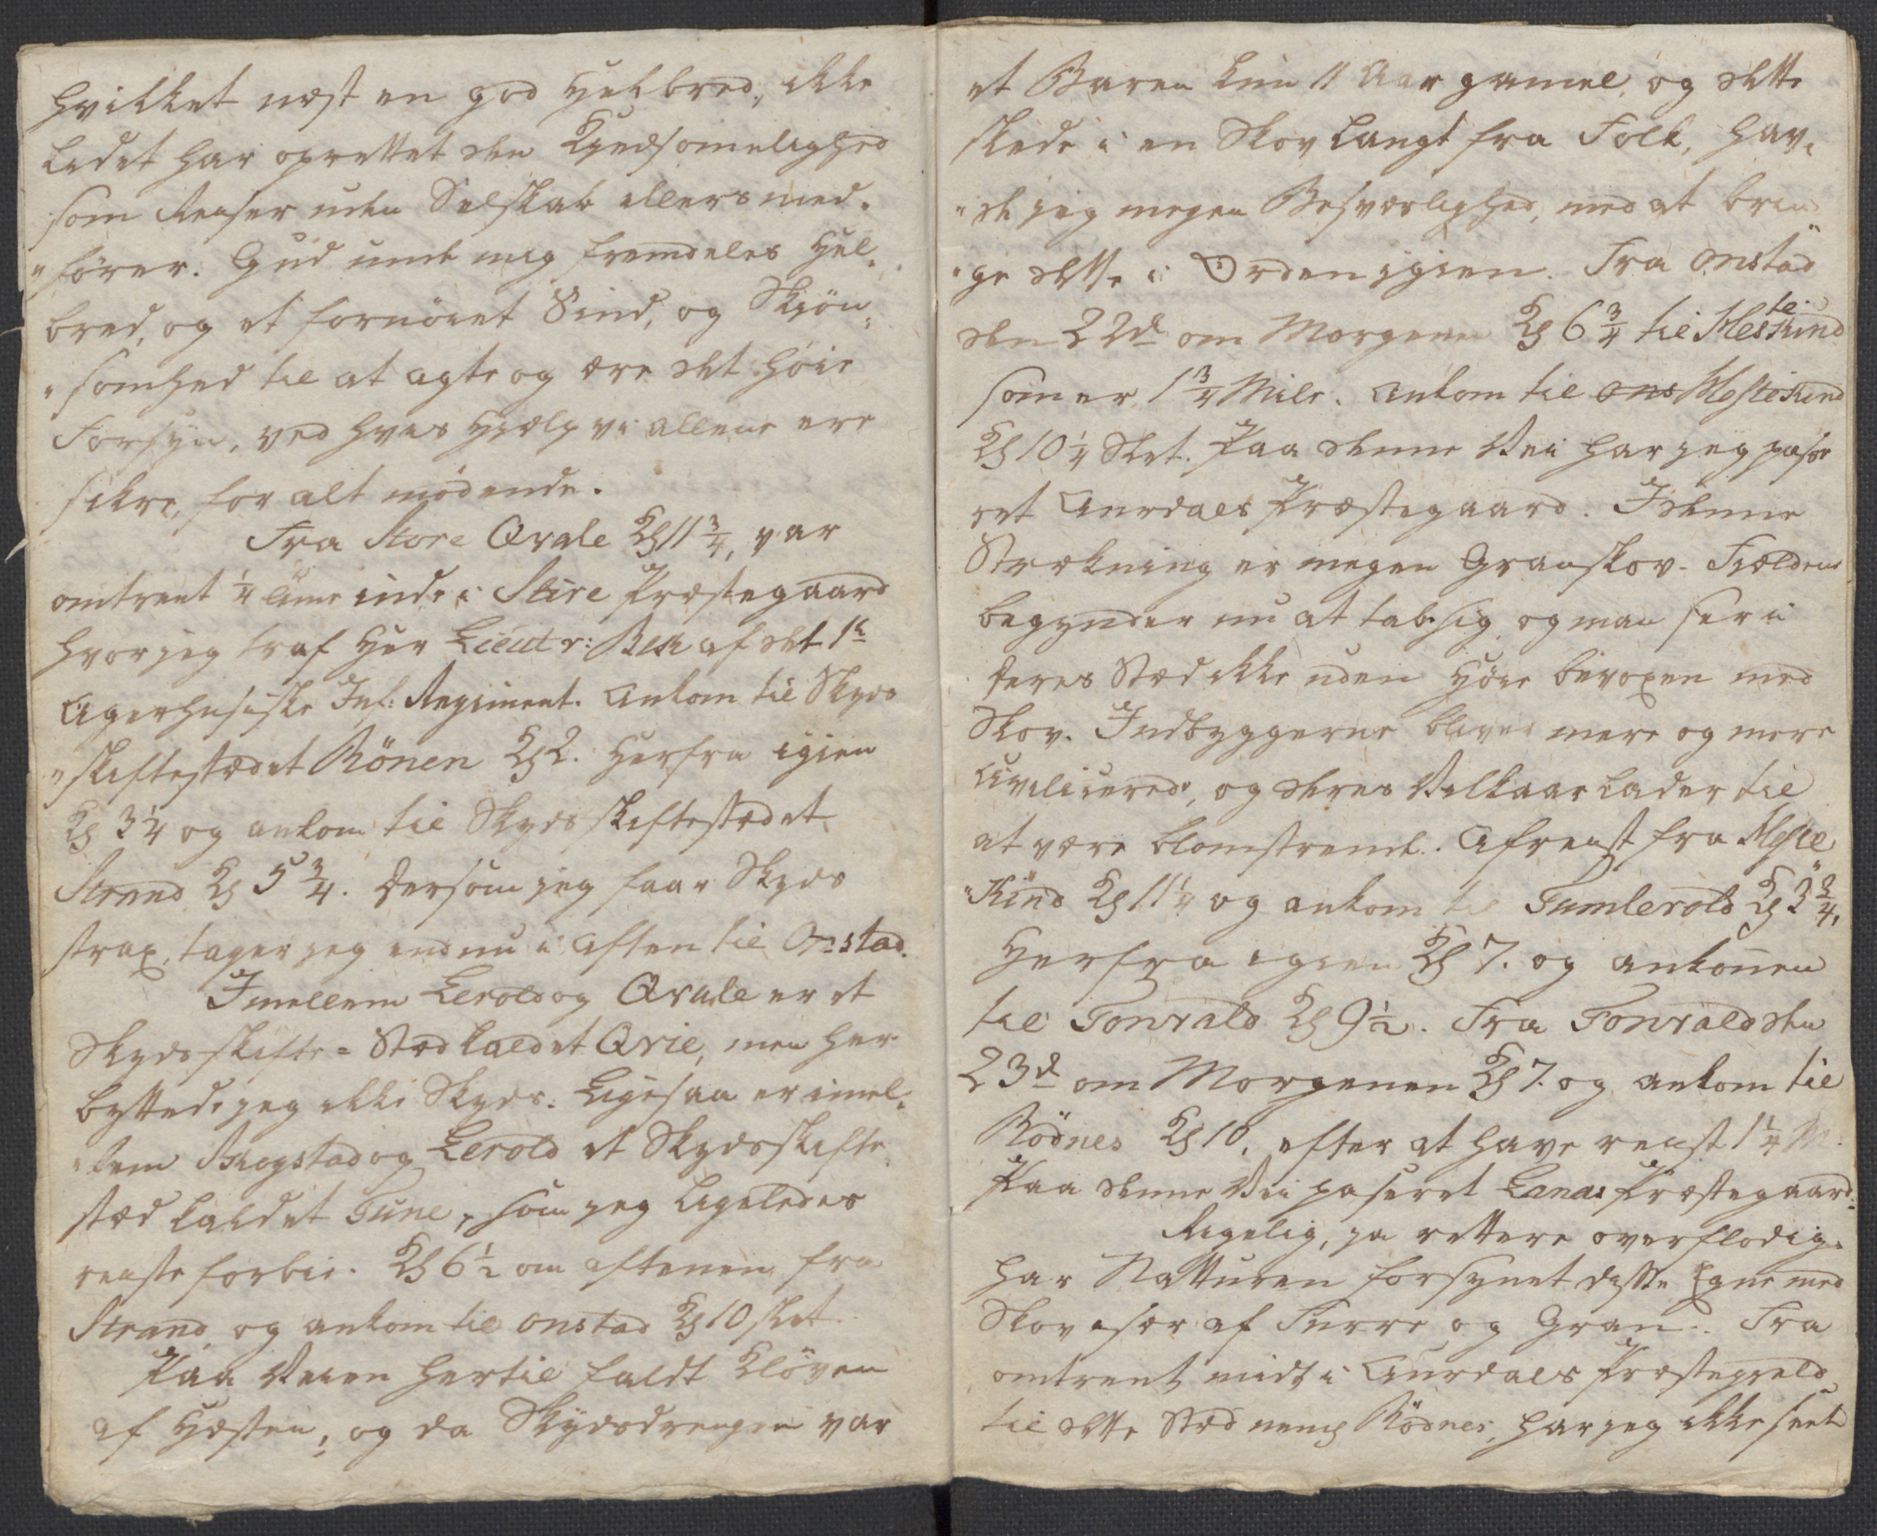 hvilket næst en god Helbred, ikke
lidet har oprettet den Kjedsomelighed
som Reiser uden Selskab ellers med-
"fører. Gud unde mig fremdeles Hel-
bred, og et fornöiet Sind, og Skjön-
"somhed til at agte og ære det høie
Forsyn, ved hvis Hjælp vi allene ere
sikre, for alt mødende.
Fra Store Qvale Kl 11 3/4, var
omtrent 1/4 Time inde i Slire Præstegaard
hvor jeg traf Her Lieutn: Bek af det 1te
Agerhusiske Inf: Regiment. Ankom til Skyds
"skiftestædet Rönen Kl 2. Herfra igien
Kl 3 1/4 og ankom til Skydsskiftestædet
Strand Kl 5 3/4. Dersom jeg faar Skyds
strax, tager jeg endnu i Aften til Onstad.
Imellem Lerold og Qvale er et
Skydsskifte=Stæd kaldet Qvie, men her
byttede jeg ikke Skyds. Ligesaa er imel-
"lem Skogstad og Lerold et Skydsskifte
stæd kaldet Tune, som jeg ligeledes
reiste forbie. Kl 6 1/2 om Aftenen fra
Strand og ankom til Onstad Kl 10 slet
Paa Veien hertil faldt Kløven
af Hæsten, og da Skydsdrengen var
et Baren kun 11 Aar gamel, og dette
skede i en Skov langt fra Folk, hav-
"de jeg megen Besværlighed, med at brin
"ge dette i Orden igien. Fra Onstad
den 22d om Morgenen Kl 6 3/4 til Mestekind
som er 1 3/4 Mile. Ankom til Ons Mestekind
Kl 10 1/4 Slet. Paa denne Vei har jeg passe
ret Aurdals Præstegaard. I denne
Strækning er megen Granskov. Fieldene
begynder nu at tabe sig og man ser i
deres Stæd ikke uden Høie bevoxen med
Skov. Indbyggerne bliver mere og mere
Civilicerede, og deres Vilkaar lader til
at være blomstrende. Afreist fra Meste
"Kind Kl 11 1/4 og ankom til Tumlerold Kl 3 3/4,
Herfra igien Kl 7. og ankomen
til Tonvald Kl 9 1/2. Fra Tonvald den
23d om Morgenen Kl 7. og ankom til
Rödnes Kl 10, efter at have reist 1 1/4 M.
Paa denne Vei paseret Lanas Præstegaard.
Rigelig, ja rettere overflodig
har Natturen forsynet disse Egne med
Skov især af Furre og Gran. Fra
omtrent midt i Aurdals Præstegield
til dette Stæd neml Rödnes, har jeg ikke seet